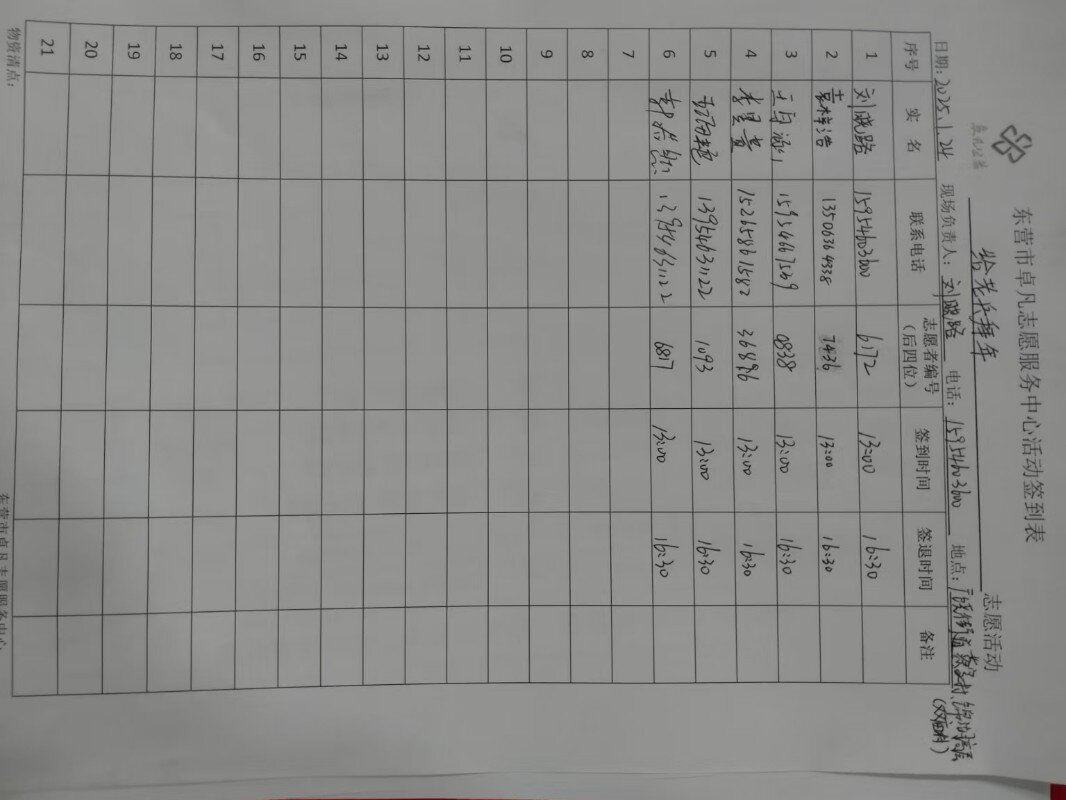 东营市卓凡志愿服务中心活动签到表
给老兵拜年 志愿活动
日期:2025.1.24 现场负责人:刘晓路 电话:15954603600 地点:
序号 实名 联系电话 志愿者编号(后四位) 签到时间 签退时间 备注
1 刘晓路 15954603600 6172 13:00 16:30
2 13506364338 7436 13:00 16:30
3 15954667569 0838 13:00 16:30
4 李昱萱 15265861582 36896 13:00 16:30
5 13954631122 1093 13:00 16:30
6 13954631122 6817 13:00 16:30
7
8
9
10
11
12
13
14
15
16
17
18
19
20
21
物资清点:
东营市卓凡志愿服务中心